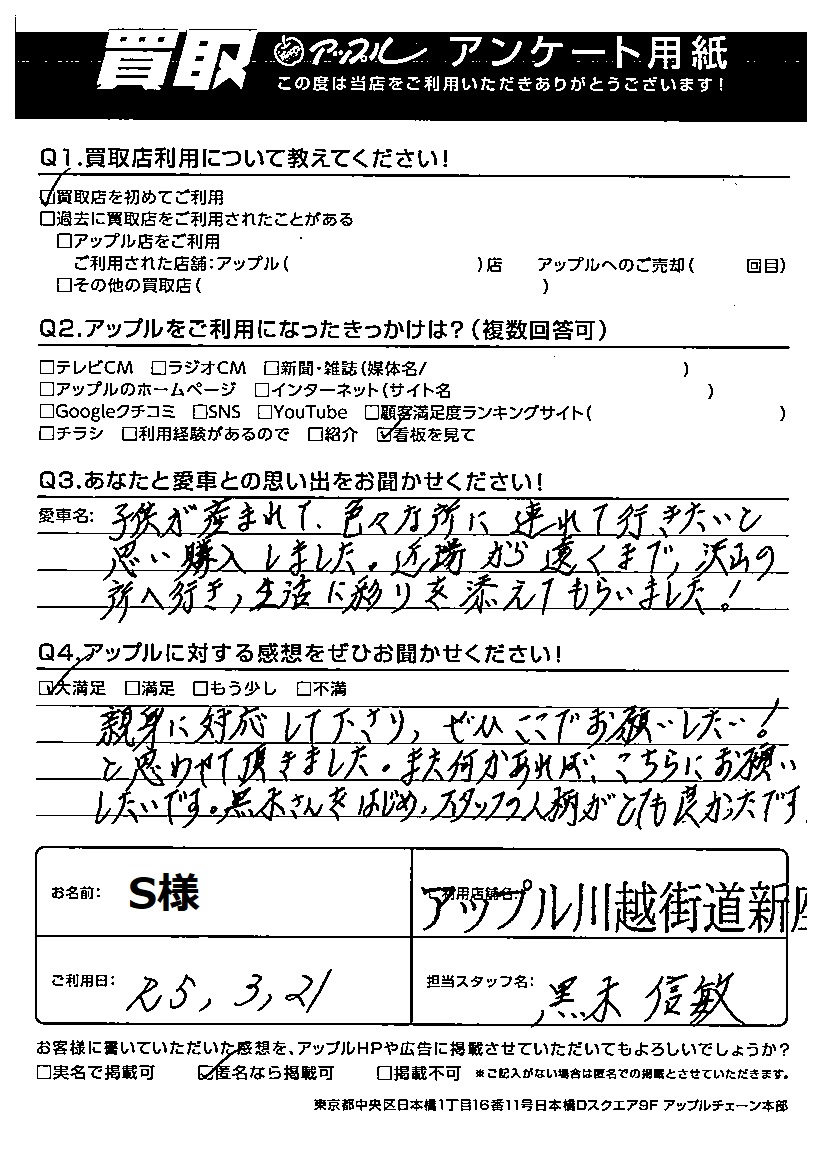 買取 アップル アンケート用紙
この度は当店をご利用いただきありがとうございます!
Q1.買取店利用について教えてください!
☑買取店を初めてご利用
□過去に買取店をご利用されたことがある
□アップル店をご利用
ご利用された店舗:アップル( )店 アップルへのご売却( 回目)
□その他の買取店( )
Q2.アップルをご利用になったきっかけは?(複数回答可)
□テレビCM □ラジオCM □新聞・雑誌(媒体名/ )
□アップルのホームページ □インターネット(サイト名 )
□Googleクチコミ □SNS □YouTube □顧客満足度ランキングサイト( )
□チラシ □利用経験があるので □紹介 ☑看板を見て
Q3.あなたと愛車との思い出をお聞かせください!
愛車名: 子供が産まれて、色々な所に連れて行きたいと
思い購入しました。近場から遠くまで、沢山の
所へ行き、生活に彩りを添えてもらいました!
Q4.アップルに対する感想をぜひお聞かせください!
☑大満足 □満足 □もう少し □不満
親身に対応して下さり、ぜひここでお願いしたい!
と思わせて頂きました。また何かあれば、こちらにお願い
したいです。黒木さんをはじめ、スタッフの人柄がとても良かったです.
お名前: S様 ご利用店舗名: アップル川越街道新座
ご利用日: R5,3,21 担当スタッフ名: 黒木 信敏
お客様に書いていただいた感想を、アップルHPや広告に掲載させていただいてもよろしいでしょうか?
□実名で掲載可 ☑匿名なら掲載可 □掲載不可 ※ご記入がない場合は匿名での掲載とさせていただきます。
東京都中央区日本橋1丁目16番11号日本橋Dスクエア9F アップルチェーン本部